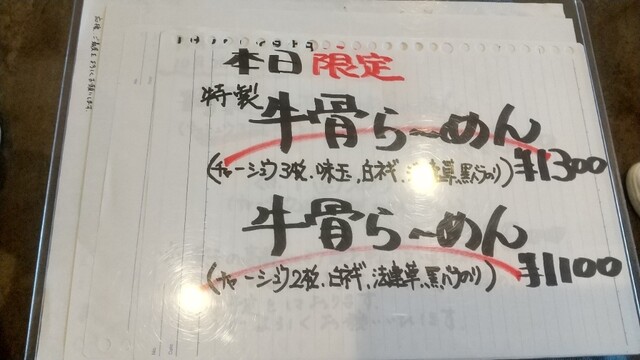 本日限定
特製
牛骨らーめん
(チャーシュウ3枚、味玉、白ネギ、法連草、黒バラのり) ¥1300
牛骨らーめん
(チャーシュウ2枚、白ネギ、法連草、黒バラのり) ¥1100